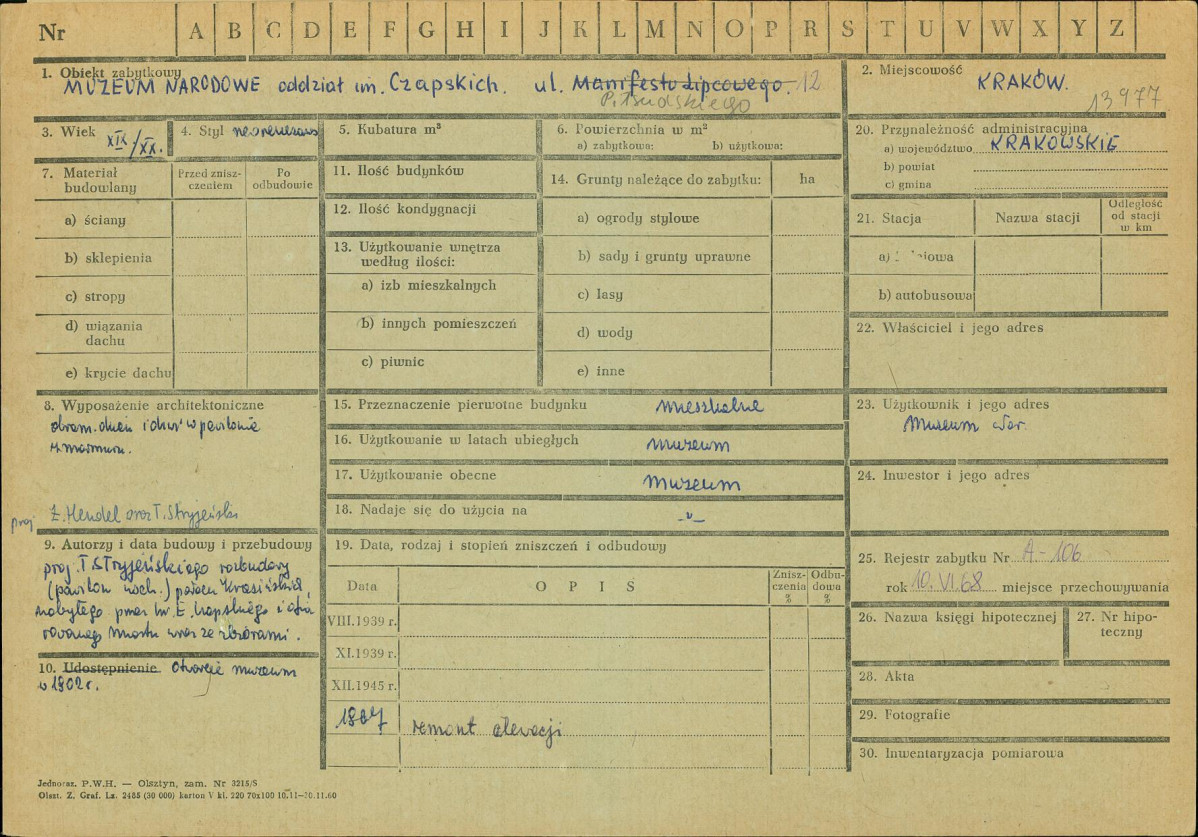 Nr A B C D E F G H I J K L M N O P R S T U V W X Y Z
1. Obiekt zabytkowy
MUZEUM NARODOWE oddział im. Czapskich. ul. Manifestu Lipcowego. 12
Piłsudskiego
2. Miejscowość
KRAKÓW.
13977
3. Wiek
XIX/XX.
4. Styl
5. Kubatura m³
6. Powierzchnia w m²
a) zabytkowa: b) użytkowa:
20. Przynależność administracyjna
a) województwo KRAKOWSKIE
b) powiat
c) gmina
7. Materiał budowlany
Przed zniszczeniem
Po odbudowie
a) ściany
b) sklepienia
c) stropy
d) wiązania dachu
e) krycie dachu
11. Ilość budynków
12. Ilość kondygnacji
13. Użytkowanie wnętrza
według ilości:
a) izb mieszkalnych
b) innych pomieszczeń
c) piwnic
14. Grunty należące do zabytku: ha
a) ogrody stylowe
b) sady i grunty uprawne
c) lasy
d) wody
e) inne
21. Stacja
Nazwa stacji
Odległość
od stacji
w km
b) autobusowa
22. Właściciel i jego adres
8. Wyposażenie architektoniczne
obram. okien i drzwi w pawilonie
z marmuru.
proj. Z. Hendel oraz T. Stryjeński
9. Autorzy i data budowy i przebudowy
proj. T. Stryjeńskiego rozbudowy
(pawilon zach.) pałacu
nabytego przez hr. E. Czapskiego i ofia
rowanego miastu wraz ze zbiorami.
10. Udostępnienie Otwarcie muzeum
w 1902 r.
15. Przeznaczenie pierwotne budynku mieszkalne
16. Użytkowanie w latach ubiegłych muzeum
17. Użytkowanie obecne muzeum
18. Nadaje się do użycia na -"-
19. Data, rodzaj i stopień zniszczeń i odbudowy
Data
OPIS
Zniszczenia
%
Odbudowa
%
VIII.1939 r.
XI.1939 r.
XII.1945 r.
remont elewacji
23. Użytkownik i jego adres
Muzeum Nar.
24. Inwestor i jego adres
25. Rejestr zabytku Nr A-106
rok 10.VI.68 miejsce przechowywania
26. Nazwa księgi hipotecznej
27. Nr hipoteczny
28. Akta
29. Fotografie
30. Inwentaryzacja pomiarowa
Jednoraz. P.W.H. — Olsztyn, zam. Nr 3215/S
Olszt. Z. Graf. Lz. 2485 (30 000) karton V kl. 220 70x100 10.11—20.11.60